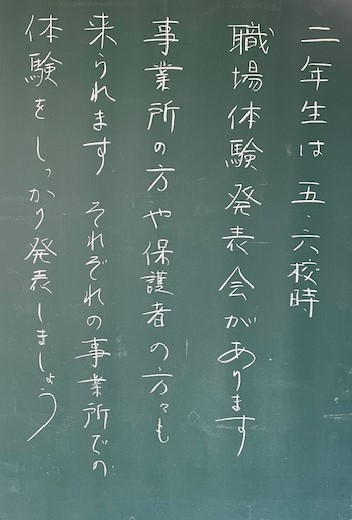 二年生は 五・六校時
職場体験発表会があります
事業所の方や保護者の方々も
来られます それぞれの事業所での
体験をしっかり発表しましょう